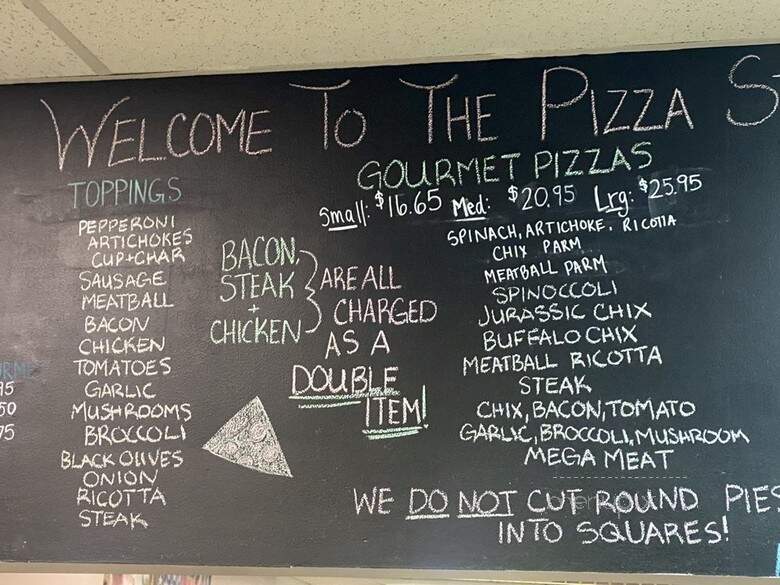 WELCOME TO THE PIZZA S
TOPPINGS
PEPPERONI
ARTICHOKES
CUP+CHAR
SAUSAGE
MEATBALL
BACON
CHICKEN
TOMATOES
GARLIC
MUSHROOMS
BROCCOLI
BLACK OLIVES
ONION
RICOTTA
STEAK
95
50
75
BACON,
STEAK
+
CHICKEN
ARE ALL
CHARGED
AS A
DOUBLE
ITEM!
GOURMET PIZZAS
Small: $16.65 Med: $20.95 Lrg: $25.95
SPINACH, ARTICHOKE, RICOTTA
CHIX PARM
MEATBALL PARM
SPINOCCOLI
JURASSIC CHIX
BUFFALO CHIX
MEATBALL RICOTTA
STEAK
CHIX, BACON, TOMATO
GARLIC, BROCCOLI, MUSHROOM
MEGA MEAT
WE DO NOT CUT ROUND PIES
INTO SQUARES!